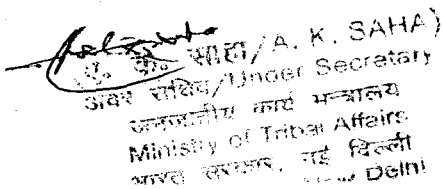 ए. के. साहा/A. K. SAHA)
अवर सचिव/Under Secretary
जनजातीय कार्य मन्त्रालय
Ministry of Tribal Affairs
भारत सरकार, नई दिल्ली
New Delhi